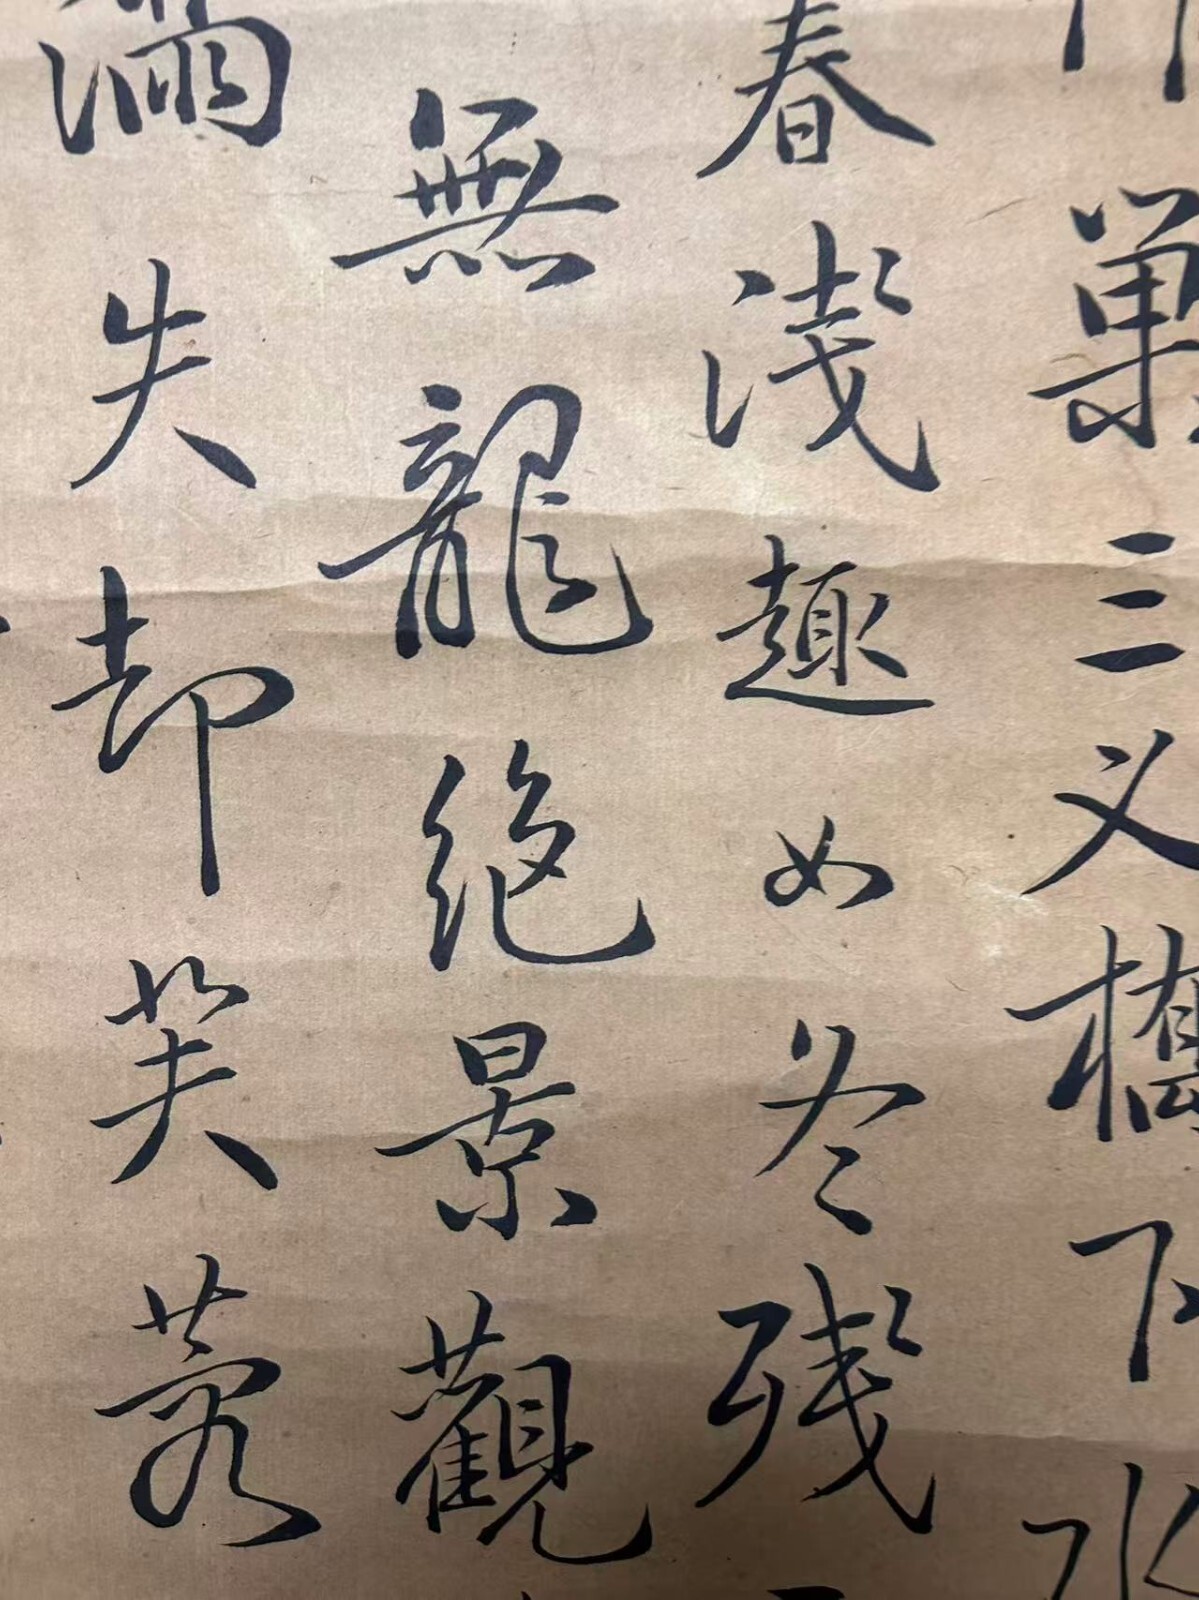 三下水
春淺趣如冬殘
無龍絶景觀
滿失却芙蓉